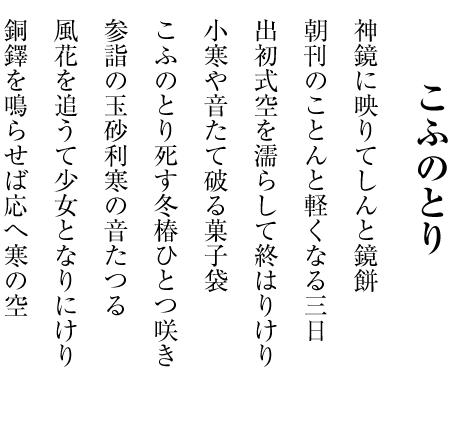 こふのとり
神鏡に映りてしんと鏡餅
朝刊のことんと軽くなる三日
出初式空を濡らして終はりけり
小寒や音たて破る菓子袋
こふのとり死す冬椿ひとつ咲き
参詣の玉砂利寒の音たつる
風花を追うて少女となりにけり
銅鐸を鳴らせば応へ寒の空